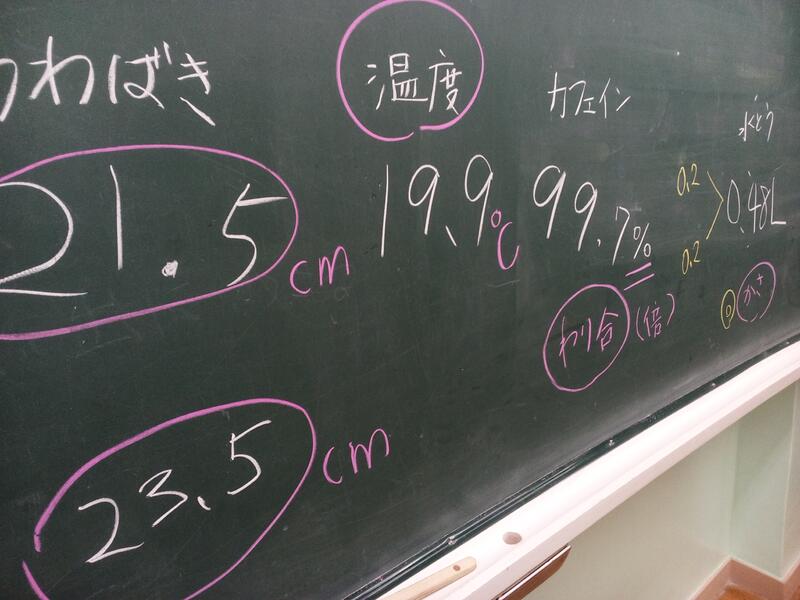 うわばき
21.5
cm
23.5
cm
温度
19.9℃
カフェイン
99.7%
わり合(倍)
水とう
0.2
0.2
0.48L
かさ